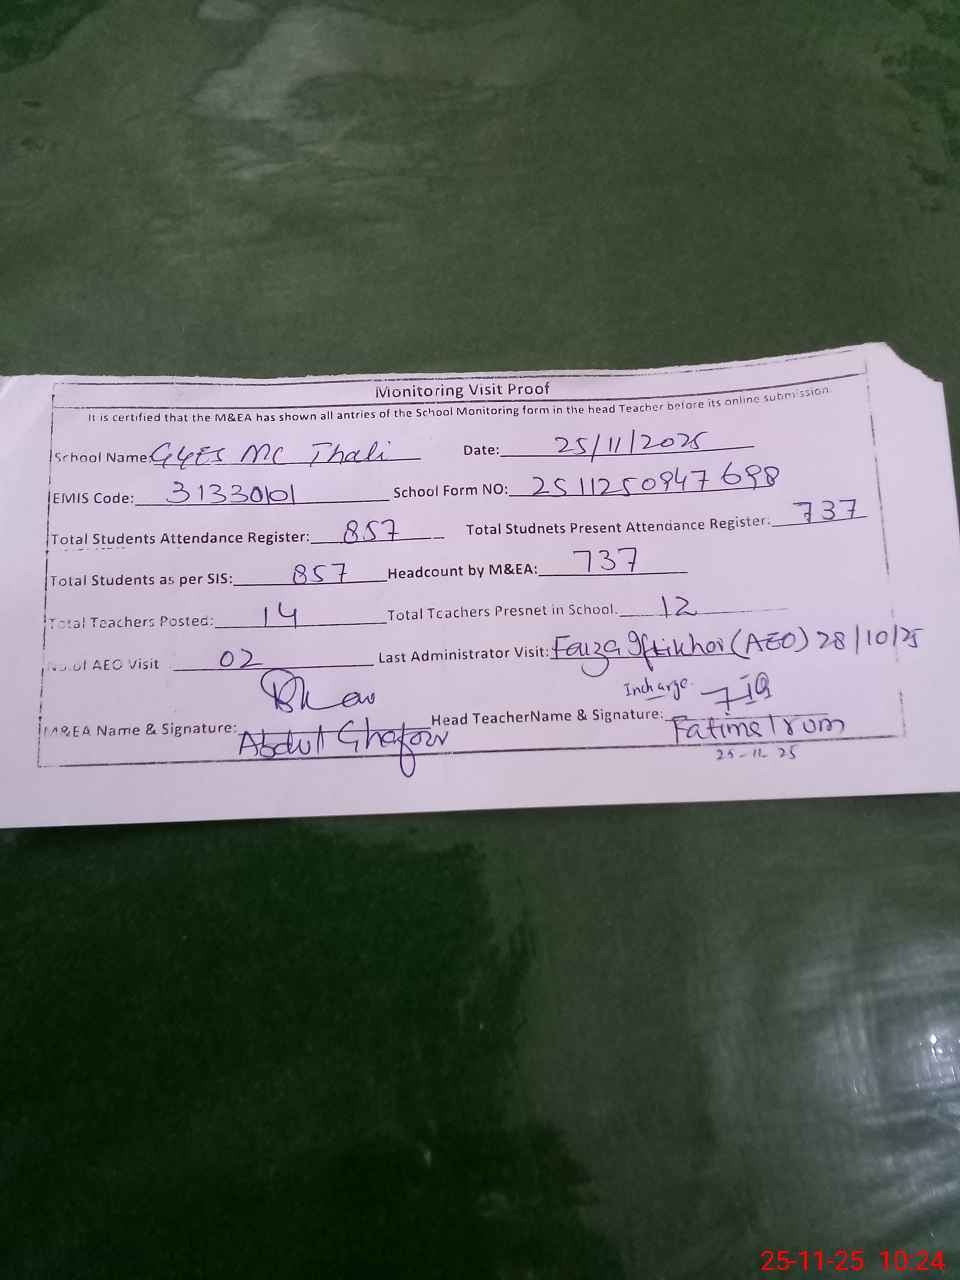 Monitoring Visit Proof
It is certified that the M&EA has shown all antries of the School Monitoring form in the head Teacher before its online submission
School Name: GGES MC Thali Date: 25/11/2025
EMIS Code: 31330101 School Form NO: 2511250947698
Total Students Attendance Register: 857 Total Studnets Present Attendance Register: 737
Total Students as per SIS: 857 Headcount by M&EA: 737
Total Teachers Posted: 14 Total Teachers Presnet in School. 12
No.of AEO Visit 02 Last Administrator Visit: Fauza Iftikhar (AEO) 28/10/25
Incharge.
M&EA Name & Signature: Abdul Ghafoor Head TeacherName & Signature: Fatima Irum
25-11-25
25-11-25 10:24